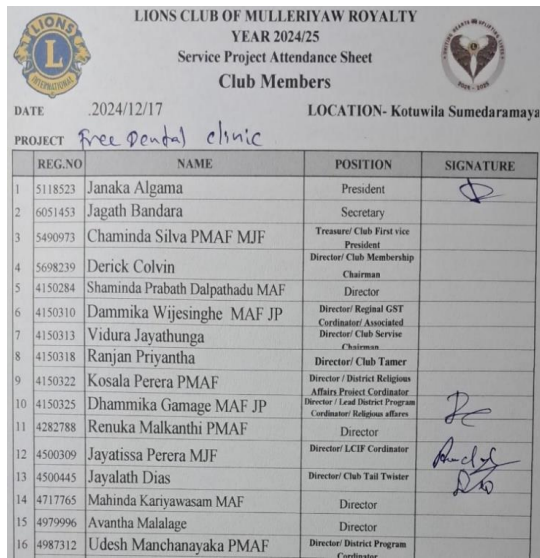 LIONS CLUB OF MULLERIYAW ROYALTY
YEAR 2024/25
Service Project Attendance Sheet
Club Members
LIONS
L
INTERNATIONAL
DATE .2024/12/17 LOCATION- Kotuwila Sumedaramaya
PROJECT Free Dental clinic
REG.NO NAME POSITION SIGNATURE
1 5118523 Janaka Algama President
2 6051453 Jagath Bandara Secretary
3 5490973 Chaminda Silva PMAF MJF Treasure/ Club First vice
President
4 5698239 Derick Colvin Director/ Club Membership
Chairman
5 4150284 Shaminda Prabath Dalpathadu MAF Director
6 4150310 Dammika Wijesinghe MAF JP Director/ Reginal GST
Cordinator/ Associated
7 4150313 Vidura Jayathunga Director/ Club Servise
Chairman
8 4150318 Ranjan Priyantha Director/ Club Tamer
9 4150322 Kosala Perera PMAF Director / District Religious
Affairs Project Cordinator
10 4150325 Dhammika Gamage MAF JP Director / Lead District Program
Cordinator/ Religious affares
11 4282788 Renuka Malkanthi PMAF Director
12 4500309 Jayatissa Perera MJF Director/ LCIF Cordinator
13 4500445 Jayalath Dias Director/ Club Tail Twister
14 4717765 Mahinda Kariyawasam MAF Director
15 4979996 Avantha Malalage Director
16 4987312 Udesh Manchanayaka PMAF Director/ District Program
Cordinator